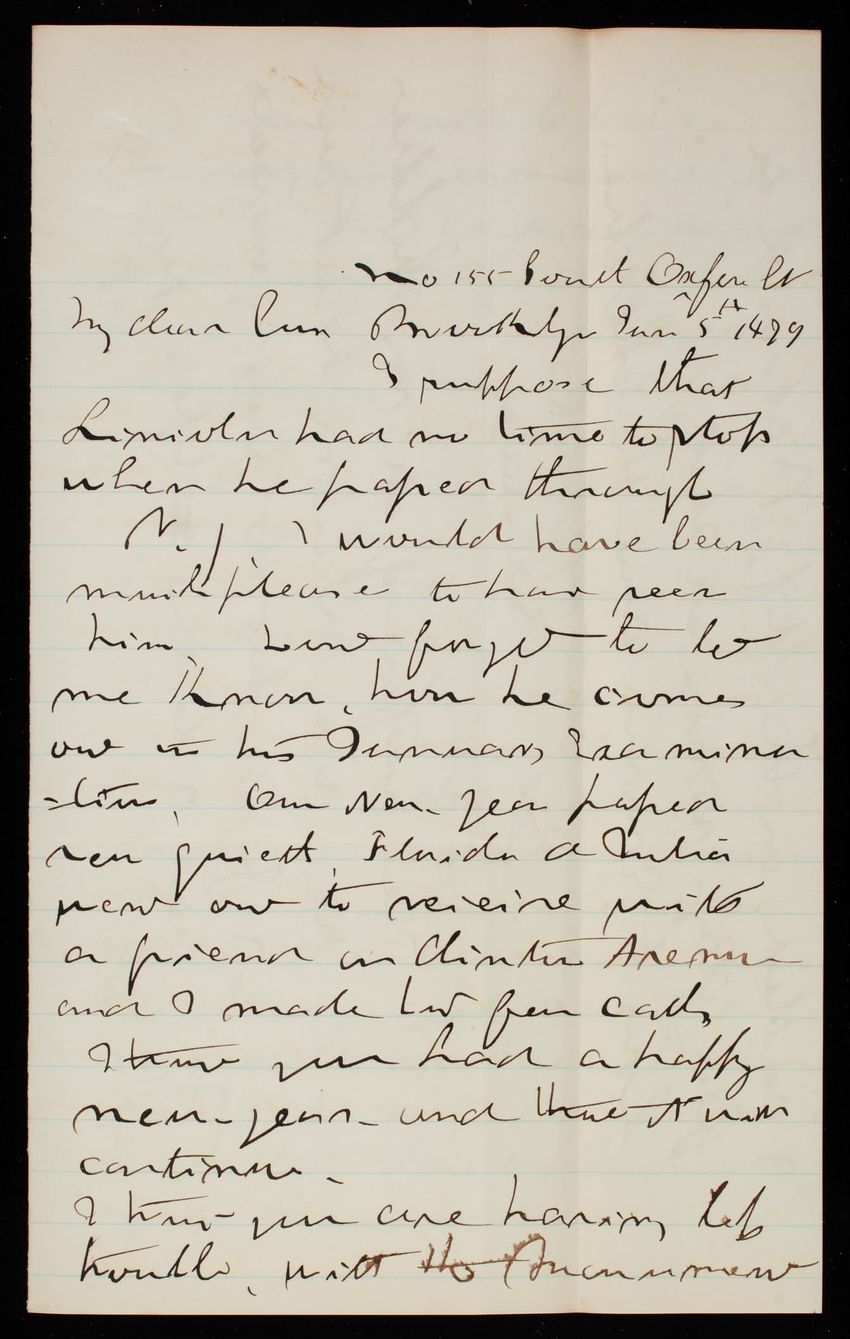 No 155 South Oxford St
My dear Cum Brooklyn Jan 5th 1879
I suppose that
Lincoln had no time to stop
when he passed through
N. Y. I would have been
much please to have seen
him, Dont forget to let
me know, how he comes
out in his January Examina
-tion, Our New-year passed
very quiett, Florida &
went out to receive with
a friend on Clinton Avenue
and I made but few calls,
I trust you had a happy
new-years- and that it will
continue.
I trust you are having less
trouble, with the Monument